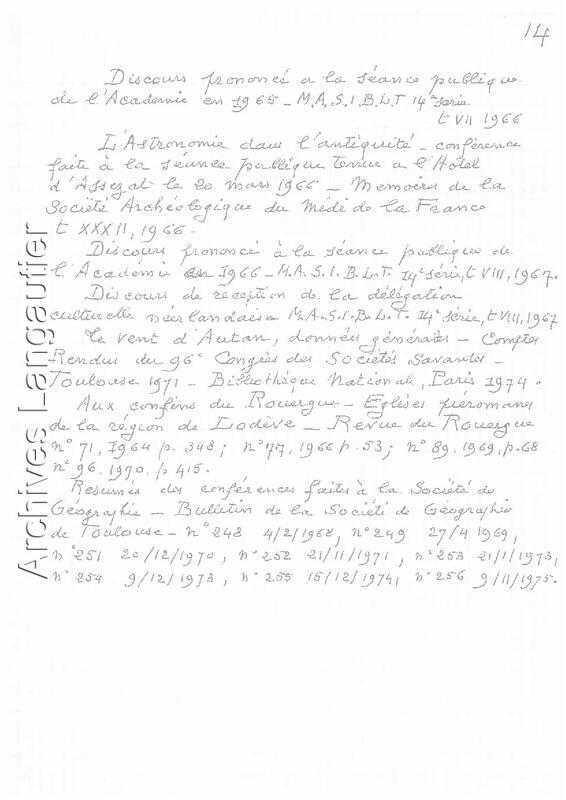 14
Discours prononcé a la séance publique
de l'Academie en 1965 - M.A.S.I.B.L.T 14e série
t VII 1966
L'Astronomie dans l'antiquité - conférence
faite à la séance publique tenue a l'Hotel
d'Assezat le 20 mars 1966 - Memoires de la
Société Archéologique du Midi de la France
t XXXII, 1966.
Discours prononcé à la séance publique de
l'Académie en 1966 - M.A.S.I.B.L.T. 14e série, t VIII, 1967.
Discours de réception de la délégation
culturelle néerlandaise M.A.S.I.B.L.T. 14e série, t VIII, 1967
Le vent d'Autan, données générales - Comptes
Rendus du 96e Congrès des Sociétés Savantes -
Toulouse 1971 - Bibliothèque Nationale, Paris 1974.
Aux confins du Rouergue - Eglises préromanes
de la région de Lodève - Revue du Rouergue
n° 71, 1964 p. 348; n° 77, 1966 p. 53; n° 89, 1969, p. 68
n° 96. 1970. p 415.
Resumés des conférences faites à la Société de
Géographie - Bulletin de la Société de Géographie
de Toulouse - n° 248 4/2/1968, n° 249 27/4 1969,
n° 251 20/12/1970, n° 252 21/11/1971, n° 253 21/1/1973,
n° 254 9/12/1973, n° 255 15/12/1974, n° 256 9/11/1975.
Archives Langautier